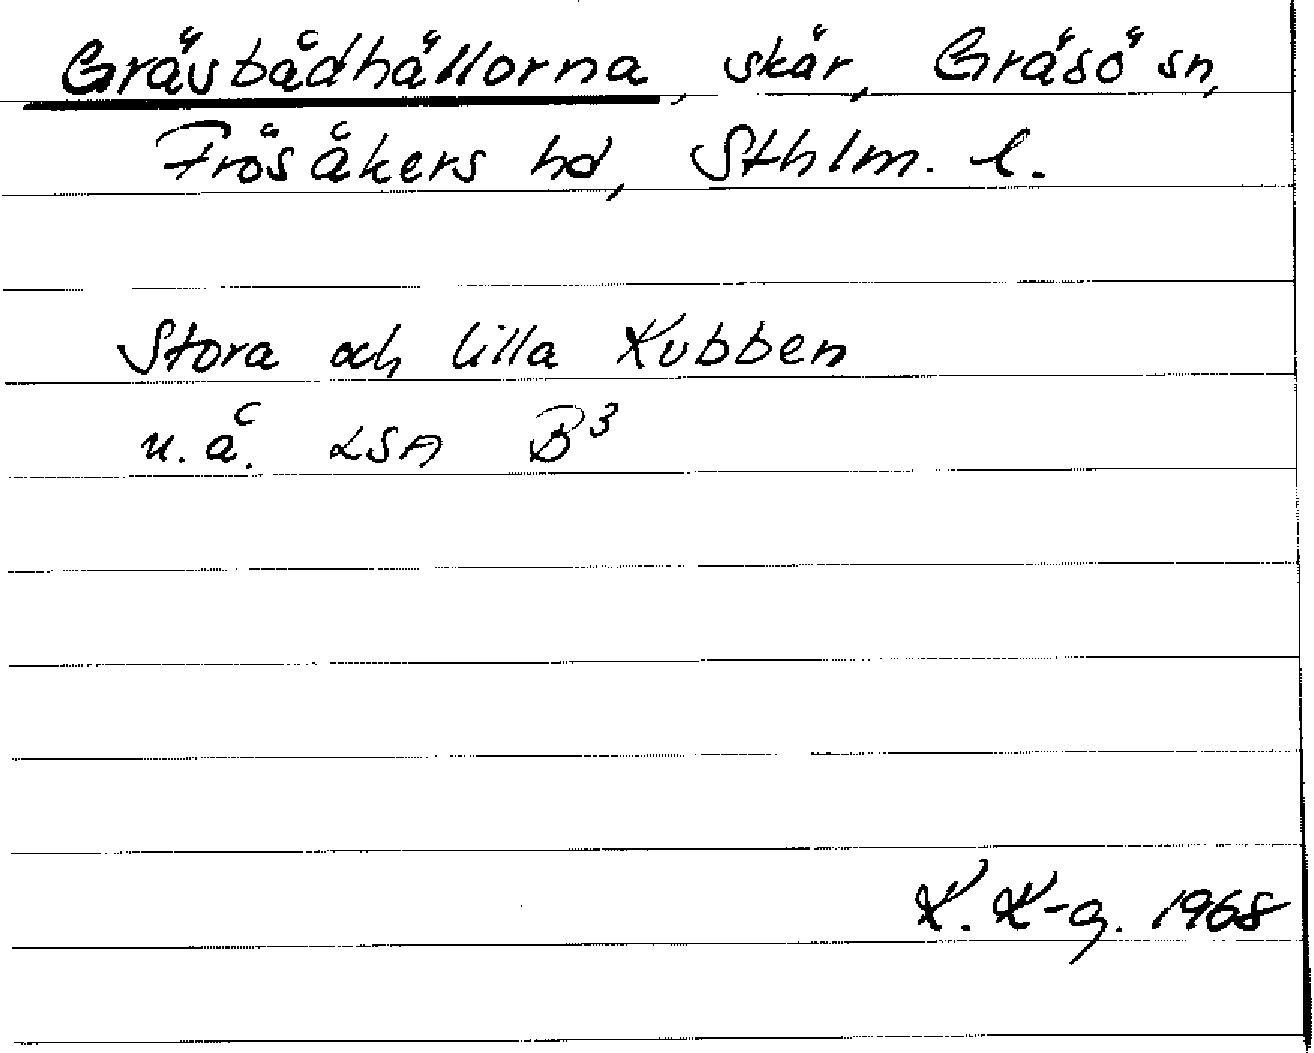 Gräsbådhällorna, skär, Gräsö sn,
Frösåkers hd, Sthlm. l.
Stora och lilla Kubben
u. å. LSA B³
K. K-g. 1968